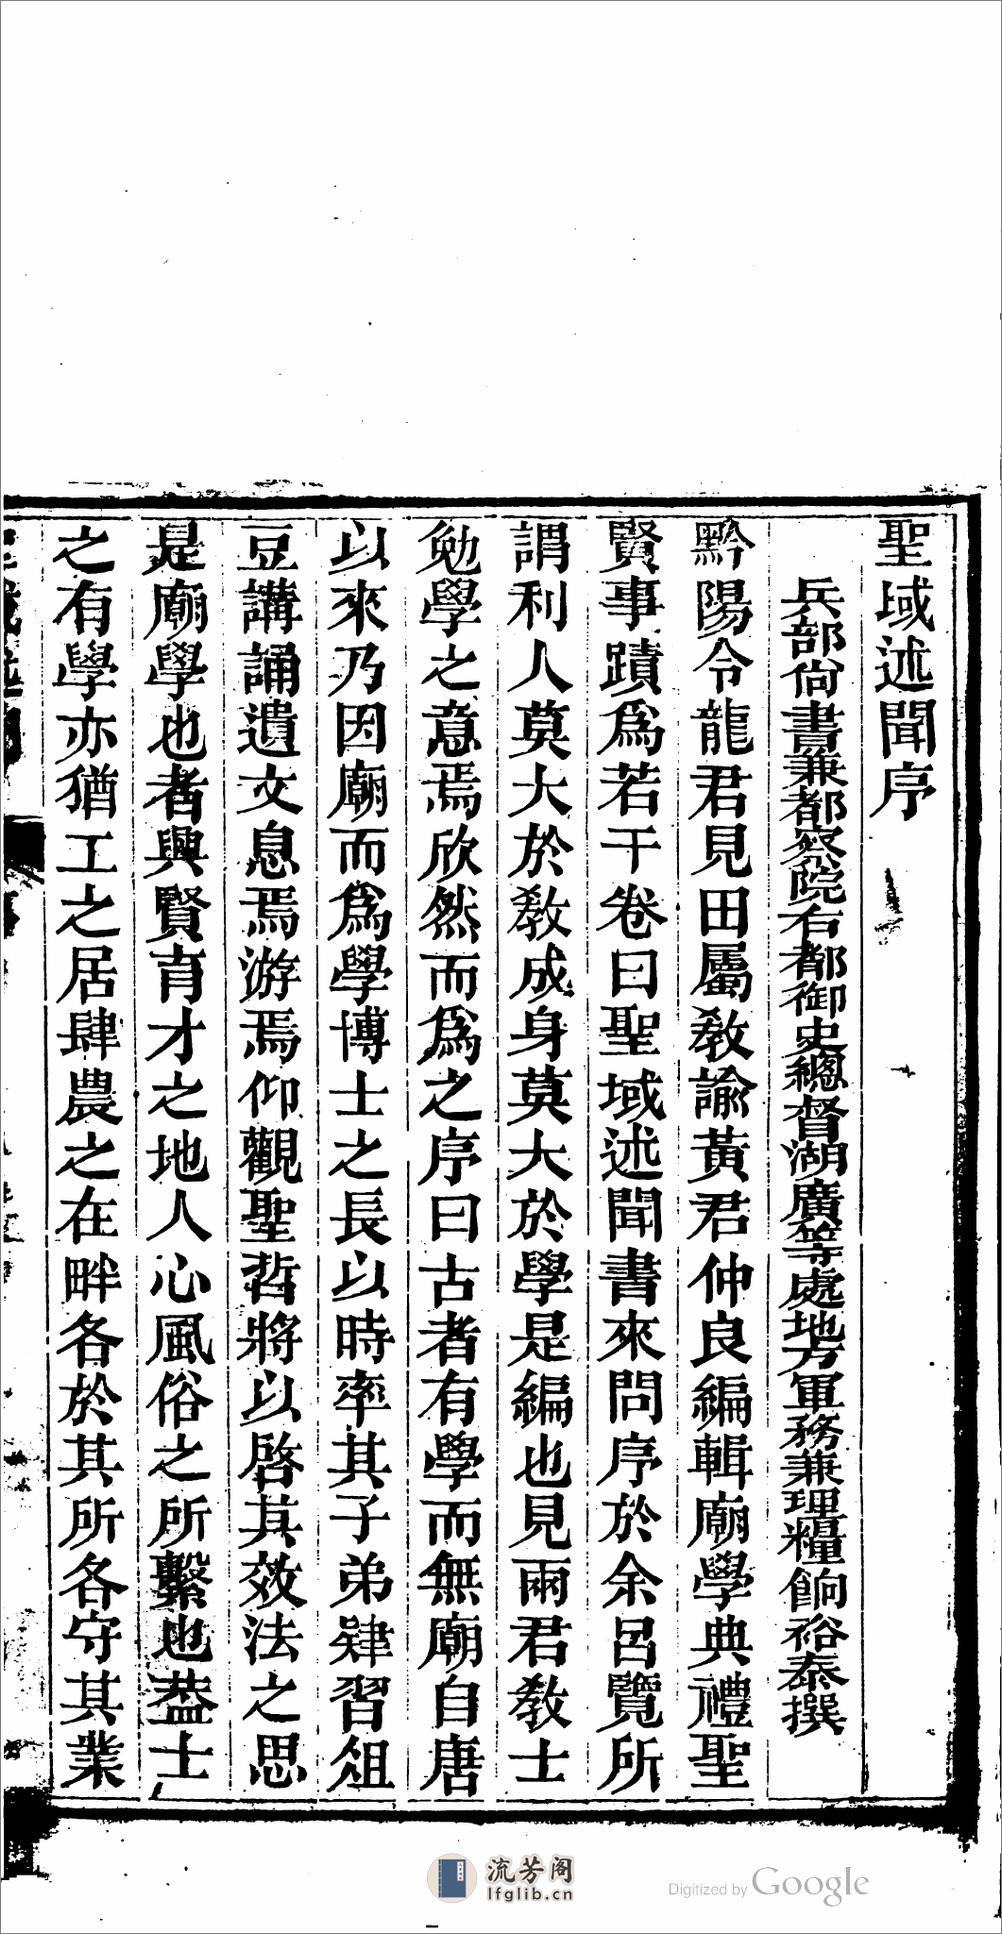 聖域述聞序
兵部尚書兼都察院右都御史總督湖廣等處地方軍務兼理糧餉裕泰撰
黔陽令龍君見田屬教諭黃君仲良編輯廟學典禮聖
賢事蹟爲若干卷曰聖域述聞書來問序於余呂覽所
謂利人莫大於教成身莫大於學是編也見兩君教士
勉學之意焉欣然而爲之序曰古者有學而無廟自唐
以來乃因廟而爲學博士之長以時率其子弟肄習俎
豆講誦遺文息焉游焉仰觀聖哲將以啓其效法之思
是廟學也者興賢育才之地人心風俗之所繫也葢士
之有學亦猶工之居肆農之在畔各於其所各守其業
流芳阁
lfglib.cn
Digitized by Google